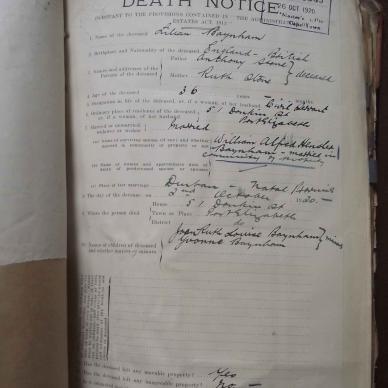 DEATH NOTICE
PURSUANT TO THE PROVISIONS CONTAINED IN "THE ADMINISTRATION
ESTATES ACT 1913"
26 OCT 1920
Cape Town
1. Name of the deceased Lilian Baynham
2. Birthplace and Nationality of the deceased England - British
3. Names and addresses of the Parents of the deceased
Father Anthony Stone
Mother Ruth Stone
} deceased
4. Age of the deceased 36 years months
5. Occupation in life of the deceased, or, if a woman, of her husband Civil Servant
6. Ordinary place of residence of the deceased, or, if a woman, of her husband 51 Donkin St Port Elizabeth
7. Married or unmarried, widower or widow Married
(a) Name of surviving spouse (if any) and whether married in community of property or not William Alfred Baynham - married in community of property
(b) Name or names and approximate date of death of predeceased spouse or spouses
(c) Place of last marriage Durban - Natal
8. The day of the decease on 2nd October 1920 -
9. Where the person died
House 51 Donkin St
Town or Place Port Elizabeth
District do
10. Names of children of deceased and whether majors or minors
Joan Ruth Louise Baynham
Yvonne Baynham
} minors
Has the deceased left any movable property? Yes
Has the deceased left any immovable property? No -